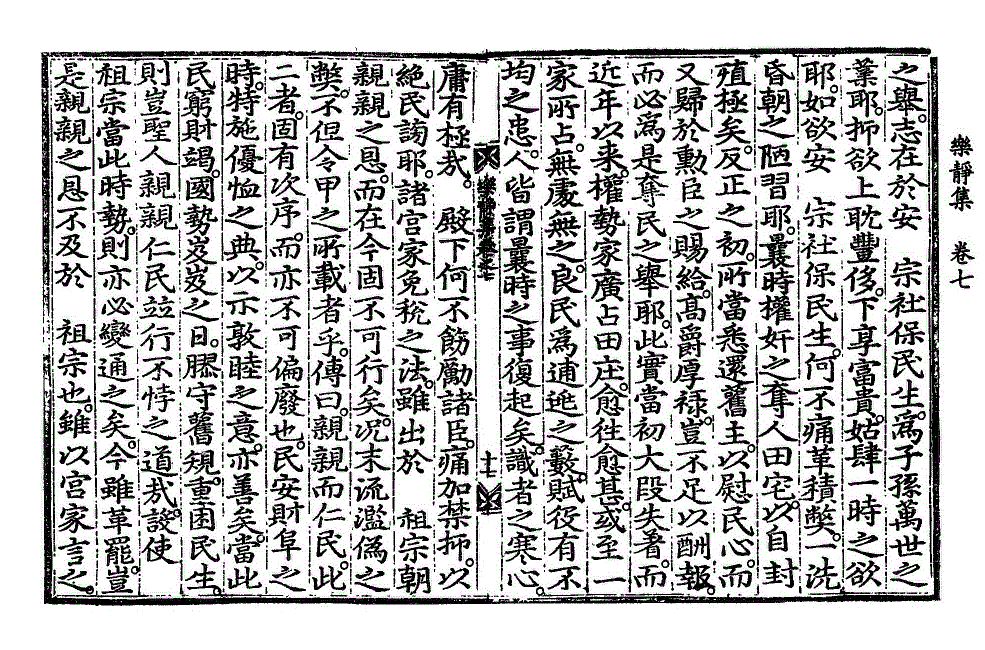 樂靜集 卷七
之擧。志在於安 宗社保民生。爲子孫萬世之
業耶。抑欲上耽豐侈。下享富貴。姑肆一時之欲
耶。如欲安 宗社保民生。何不痛革積弊。一洗
昏朝之陋習耶。曩時權奸之奪人田宅。以自封
殖極矣。反正之初。所當悉還舊主。以慰民心。而
又歸於勳臣之賜給。高爵厚祿。豈不足以酬報。
而必爲是奪民之擧耶。此實當初大段失着。而
近年以來。權勢家廣占田庄。愈往愈甚。或至一
家所占。無處無之。良民爲逋逃之藪。賦役有不
均之患。人皆謂曩時之事復起矣。識者之寒心。
樂靜集卷七 十一
庸有極哉。 殿下何不飭勵諸臣。痛加禁抑。以
絶民謗耶。諸宮家免稅之法。雖出於 祖宗朝
親親之恩。而在今固不可行矣。况末流濫僞之
弊。不但令甲之所載者乎。傳曰。親親而仁民。此
二者。固有次序。而亦不可偏廢也。民安財阜之
時。特施優恤之典。以示敦睦之意。亦善矣。當此
民窮財竭。國勢岌岌之日。膠守舊規。重困民生。
則豈聖人親親仁民竝行不悖之道哉。設使
祖宗當此時勢。則亦必變通之矣。今雖革罷。豈
是親親之恩不及於 祖宗也。雖以宮家言之。